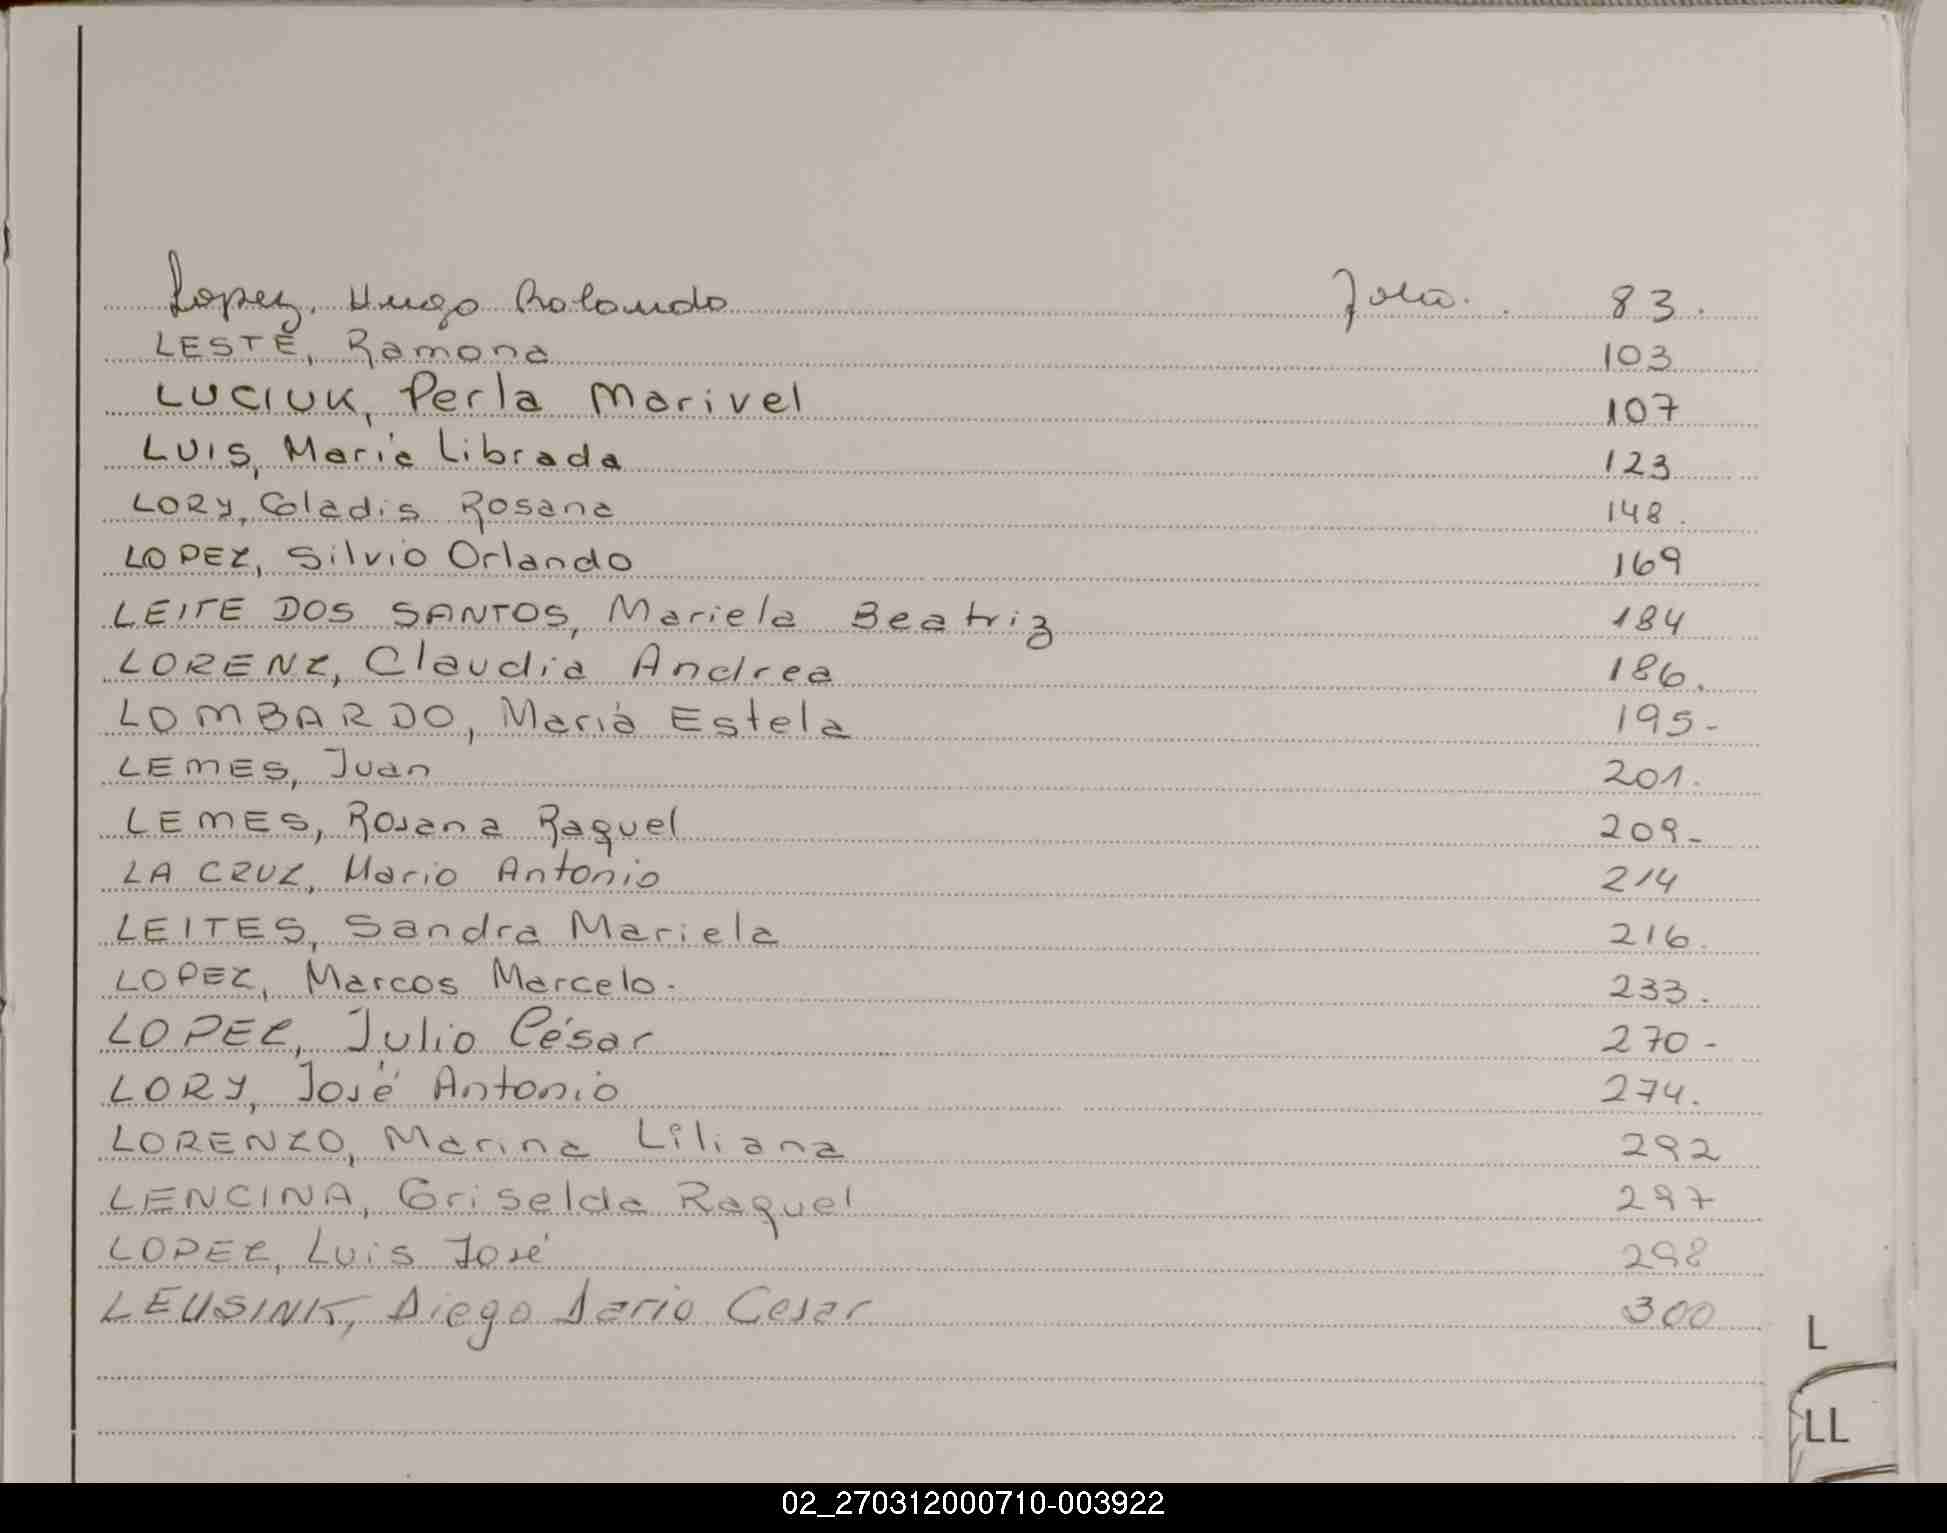 Lopez, Hugo Rolando Folio. 83.
LESTE, Ramona 103
LUCIUK, Perla Marivel 107
LUIS, Maria Librada 123
LORY, Gladis Rosana 148.
LOPEZ, Silvio Orlando 169
LEITE DOS SANTOS, Mariela Beatriz 184
LORENZ, Claudia Andrea 186.
LOMBARDO, María Estela 195-
LEMES, Juan 201.
LEMES, Rosana Raquel 209-
LA CRUZ, Mario Antonio 214
LEITES, Sandra Mariela 216.
LOPEZ, Marcos Marcelo. 233.
LOPEZ, Julio César 270-
LORY, José Antonio 274.
LORENZO, Marina Liliana 292
LENCINA, Griselda Raquel 297
LOPEZ, Luis José 298
LEUSINK, Diego Dario Cesar 300
L
LL
02_270312000710-003922